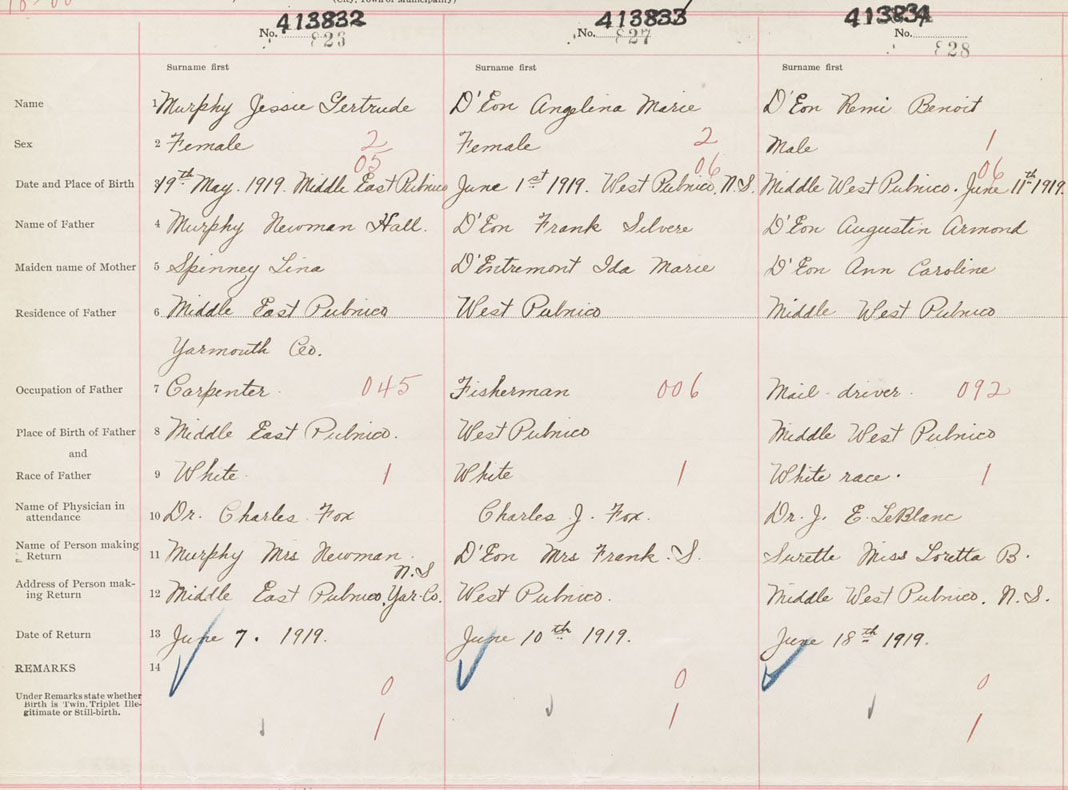 (City, Town or Municipality)
No. 413832 No. 413833 No. 413834
823 827 828
Surname first Surname first Surname first
Name 1 Murphy Jessie Gertrude D'Eon Angelina Marie D'Eon Remi Benoit
Sex 2 Female 2 Female 2 Male 1
05 06 06
Date and Place of Birth 19th May. 1919. Middle East Pubnico June 1st 1919. West Pubnico, N.S. Middle West Pubnico. June 11th 1919.
Name of Father 4 Murphy Newman Hall. D'Eon Frank Silvere D'Eon Augustin Armond
Maiden name of Mother 5 Spinney Lina D'Entremont Ida Marie D'Eon Ann Caroline
Residence of Father 6 Middle East Pubnico West Pubnico Middle West Pubnico
Yarmouth Co.
Occupation of Father 7 Carpenter 045 Fisherman 006 Mail driver. 092
Place of Birth of Father 8 Middle East Pubnico. West Pubnico Middle West Pubnico
and
Race of Father 9 White 1 White 1 White race. 1
Name of Physician in
attendance 10 Dr. Charles Fox Charles J. Fox. Dr. J. E. LeBlanc
Name of Person making
Return 11 Murphy Mrs Newman. D'Eon Mrs Frank. S. Surette Miss Loretta B.
N.S
Address of Person mak-
ing Return 12 Middle East Pubnico, Yar. Co. West Pubnico. Middle West Pubnico. N.S.
Date of Return 13 June 7. 1919. June 10th 1919. June 18th 1919.
REMARKS 14
0 0 0
Under Remarks state whether
Birth is Twin, Triplet Ille-
gitimate or Still-birth.
1 1 1